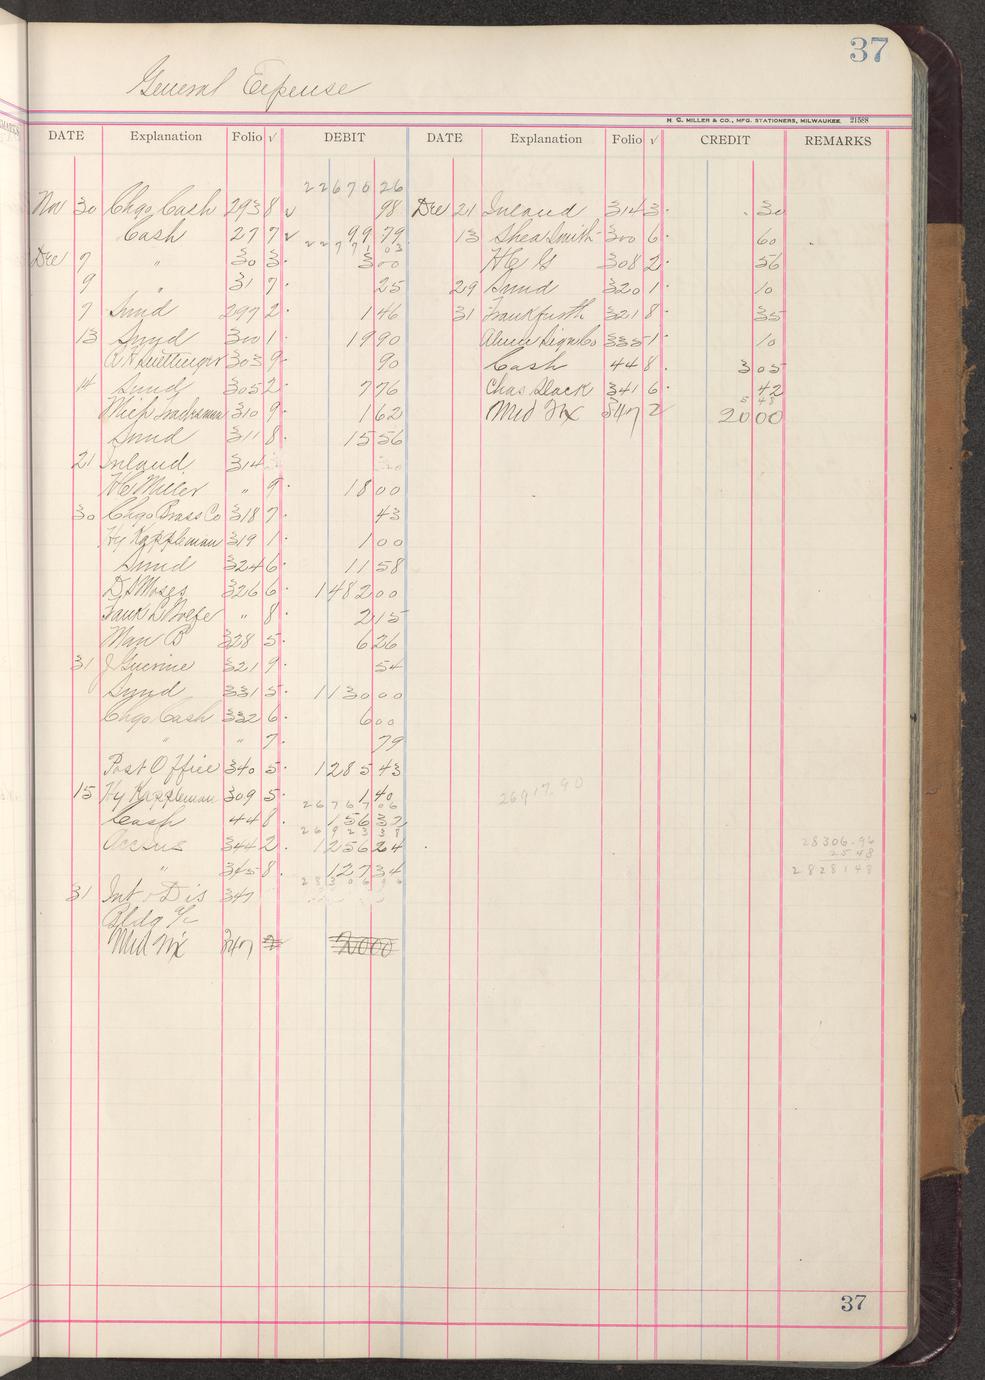 37
General Expense
H. C. MILLER & CO., MFG. STATIONERS, MILWAUKEE. 21588
DATE Explanation Folio √ DEBIT DATE Explanation Folio √ CREDIT REMARKS
22670 26
Nov 30 Chgo Cash 293 8 √ 98 Dec 21 Inland 314 3 30
Cash 27 7 √ 99 79 13 Shea Smith 300 6 60
22771 03
Dec 7 " 30 3 3 00 H C G 308 2 56
9 " 31 7 25 29 Sund 320 1 10
7 Sund 297 2 1 46 31 Frankfurth 321 8 35
13 Sund 300 1 19 90 Alum Sign Co 335 1 10
303 9 90 Cash 44 8 3 05
14 Sund 305 2 7 76 Chas Slack 341 6 42
5 48
Mich 310 9 1 62 Mad Fix 347 2 20 00
Sund 311 8 15 56
21 Inland 314
H C Miller " 9 18 00
30 Chgo Brass Co 318 7 43
Hy Kappleman 319 1 1 00
Sund 324 6 11 58
D S Moses 326 6 1482 00
Frank L Wolfe " 8 2 15
Man B 328 5 6 26
31 J Guerine 321 9 54
Sund 331 5 1130 00
Chgo Cash 332 6 6 00
" " 7 79
Post Office 340 5 1285 43
15 Hy Kappleman 309 5 1 40 26917.90
26767 06
Cash 44 8 156 32
26923 38
344 2 1256 24 28306.96
25 48
" 345 8 127 34 28281 48
28306 96
31 Int & Dis 347
Bldg a/c
Mad Fix 347 2 2000
37